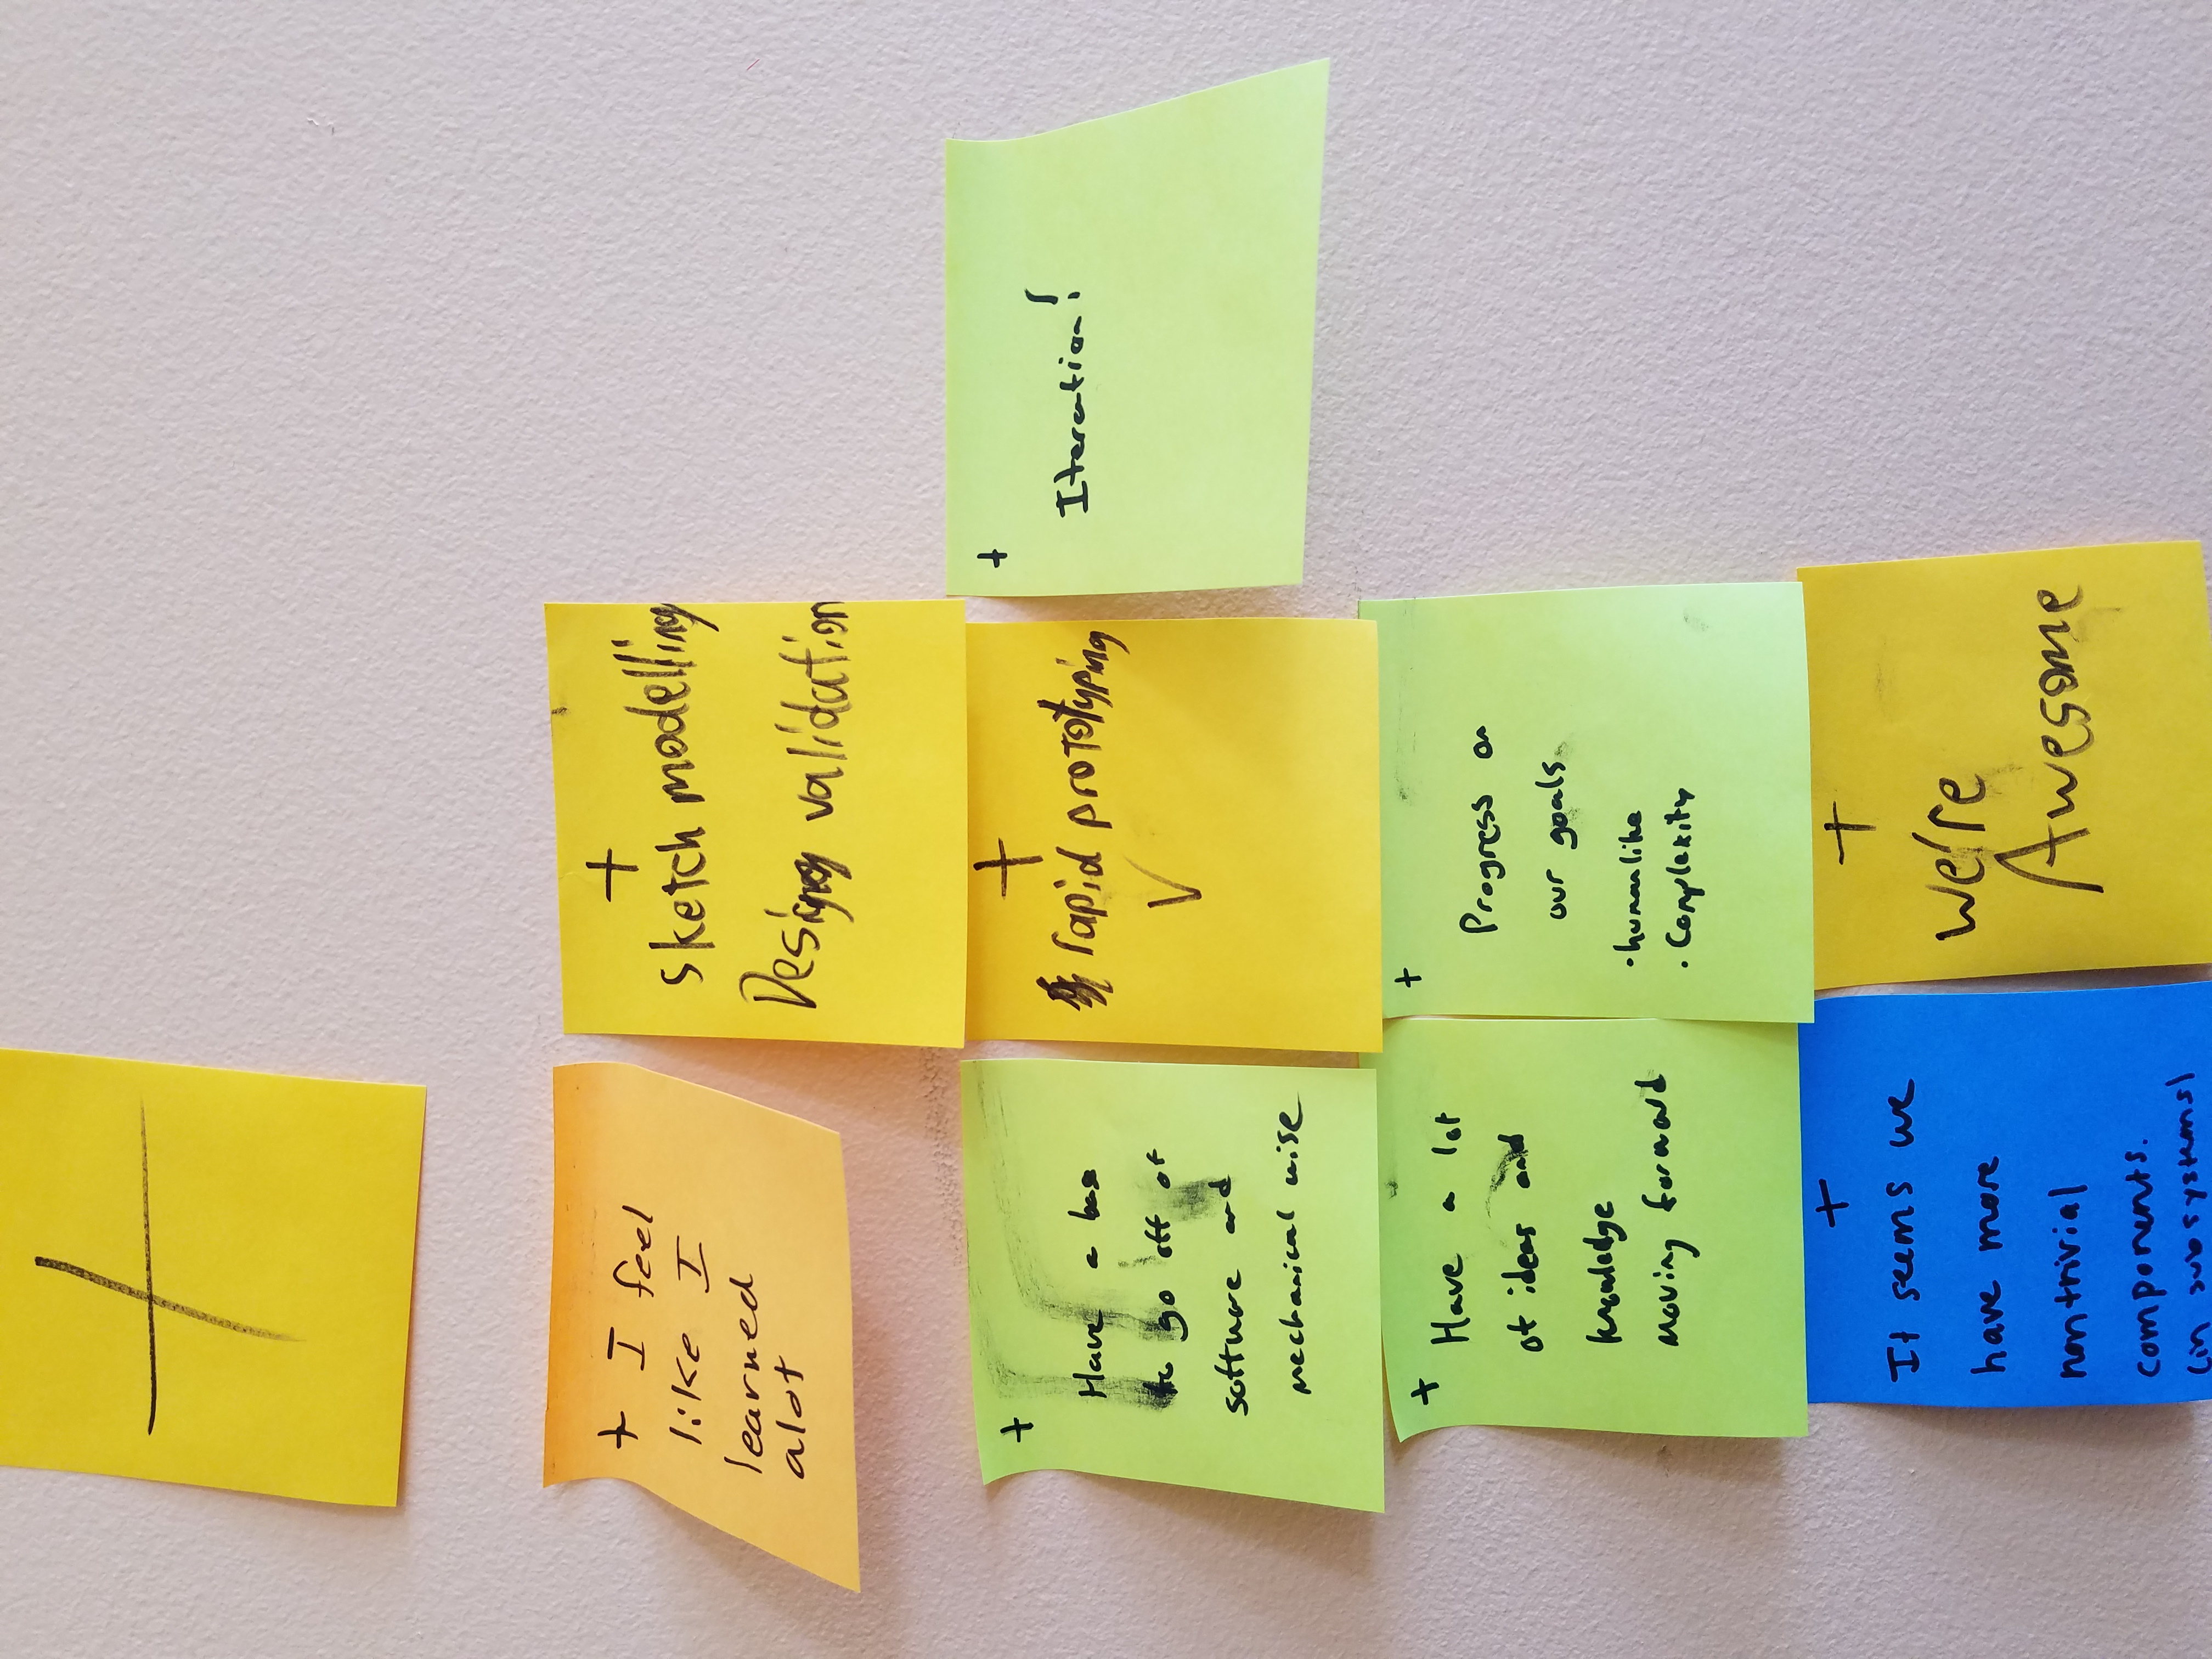 +
+ I feel
like I
learned
alot
+
sketch modelling
Design validation
+
Have a base
to go off of
software and
mechanical wise
+
rapid prototyping
+
Iteration!
+
Have a lot
of ideas and
knowledge
moving forward
+
Progress on
our goals
• humanlike
• Complexity
+
It seems we
have more
nontrivial
components.
(in subsystems)
+
We're
Awesome